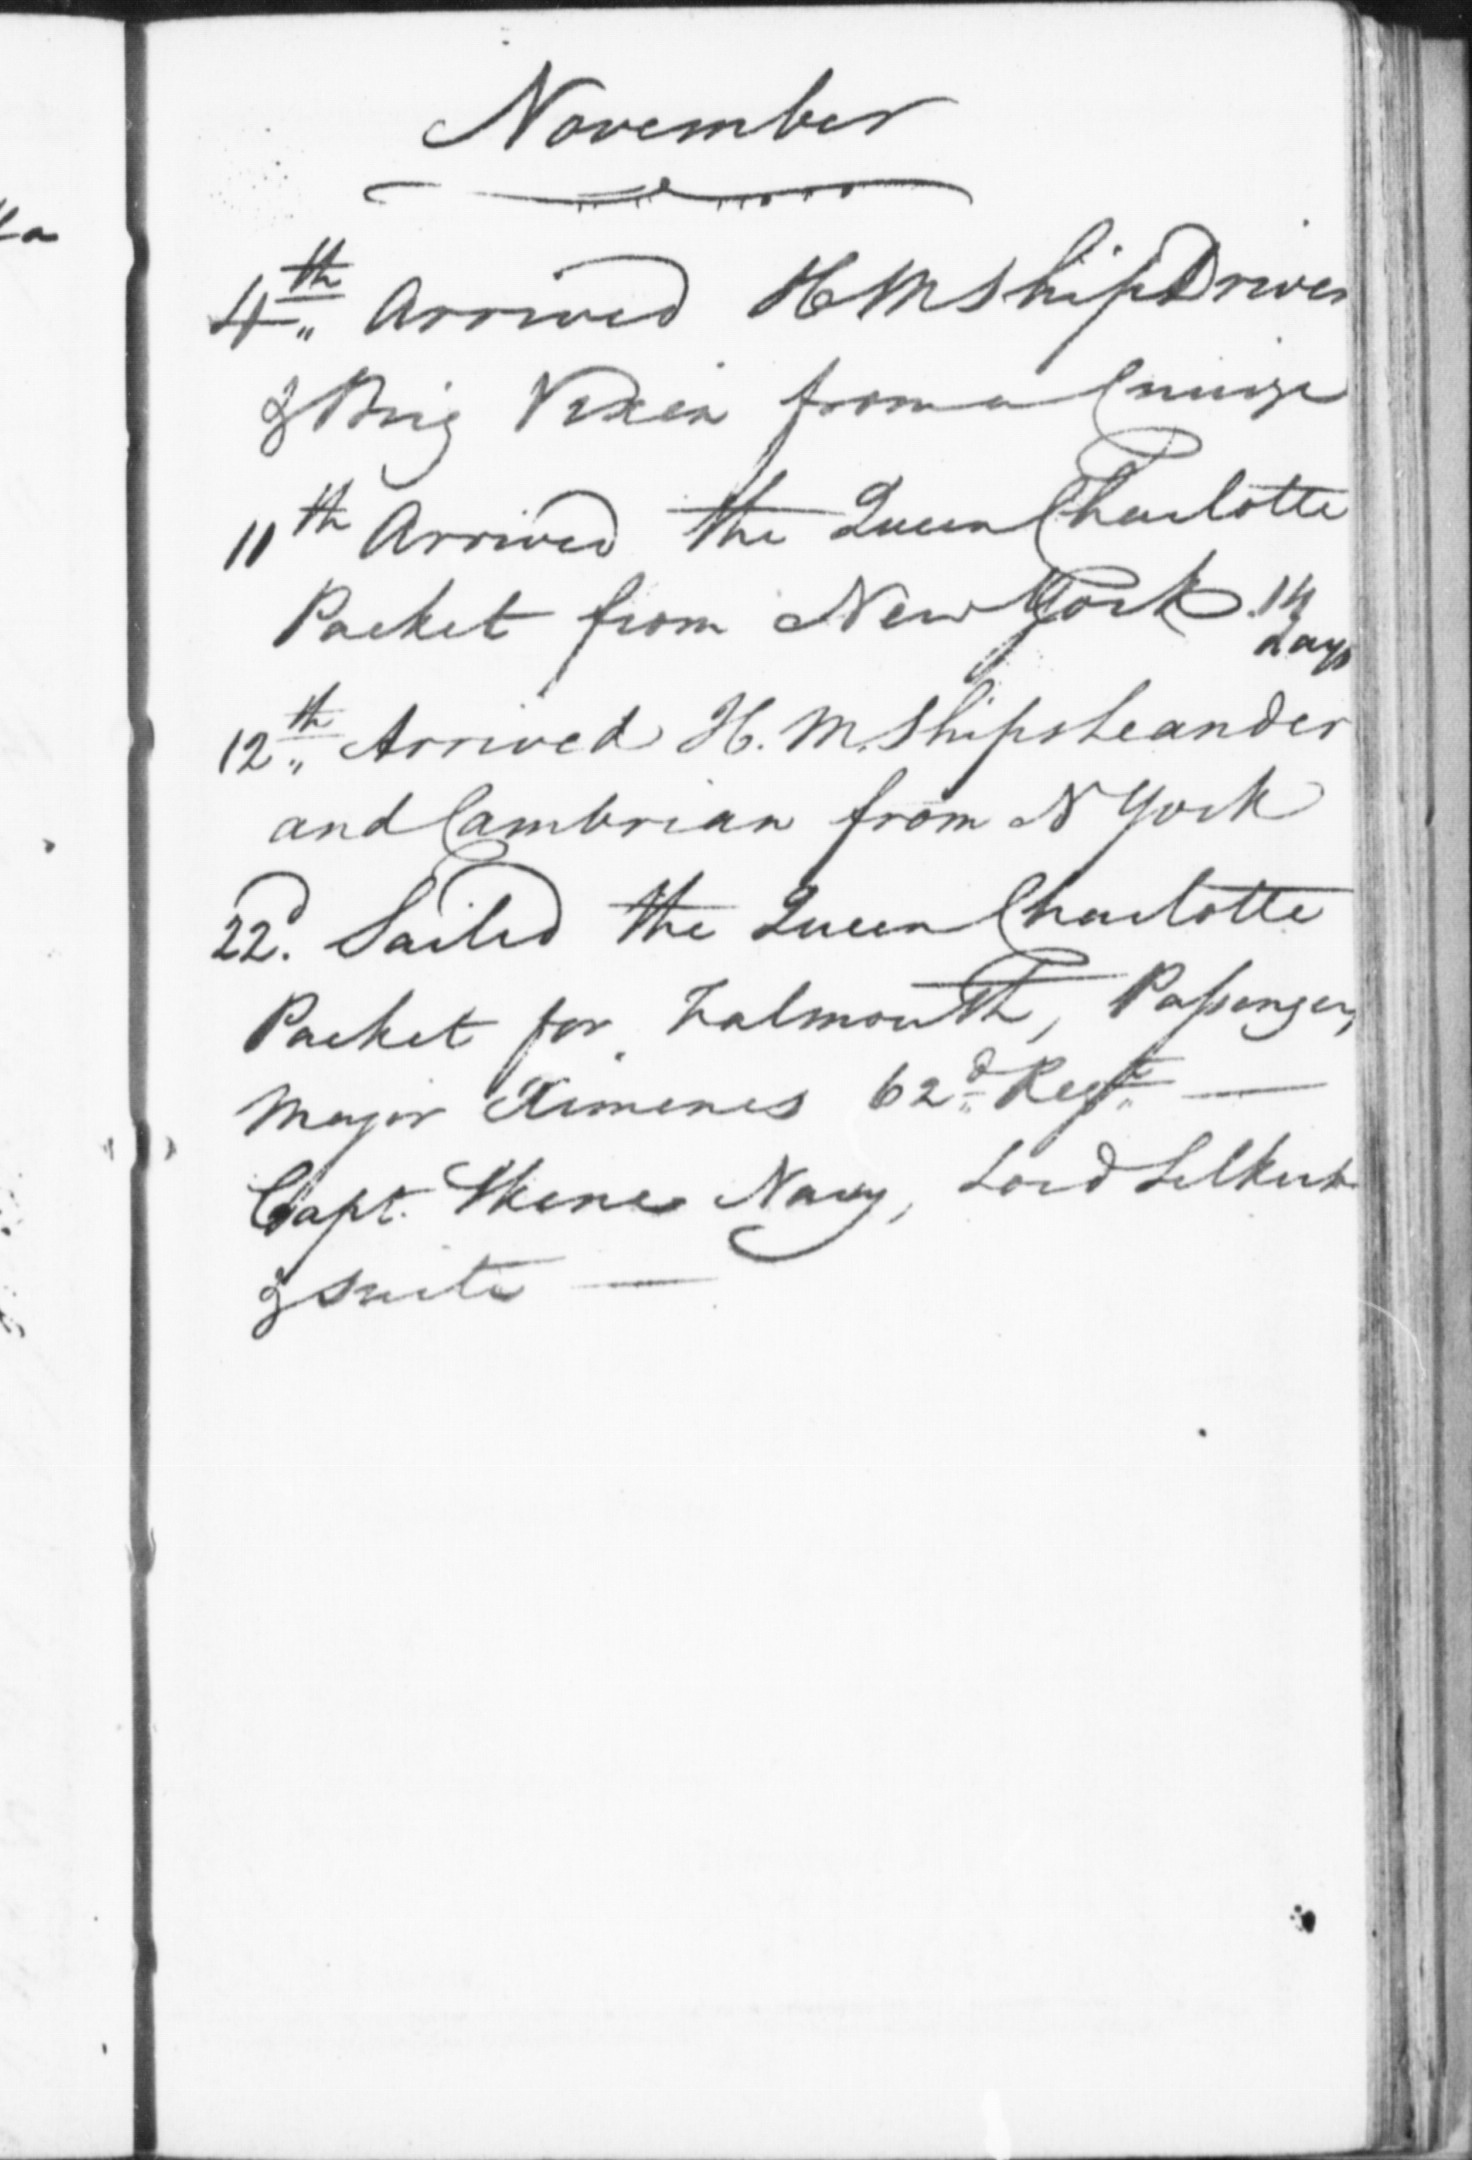 November
4th Arrived H M Ship Driver
& Brig Vixen from a Cruize
11th Arrived the Queen Charlotte
Packet from New York 14
days
12th Arrived H. M. Ships Leander
and Cambrian from N York
22d. Sailed the Queen Charlotte
Packet for Falmouth, Passengers,
Major Ximenes 62d Regt —
Capt. Skene Navy, Lord Selkirk
& suite —